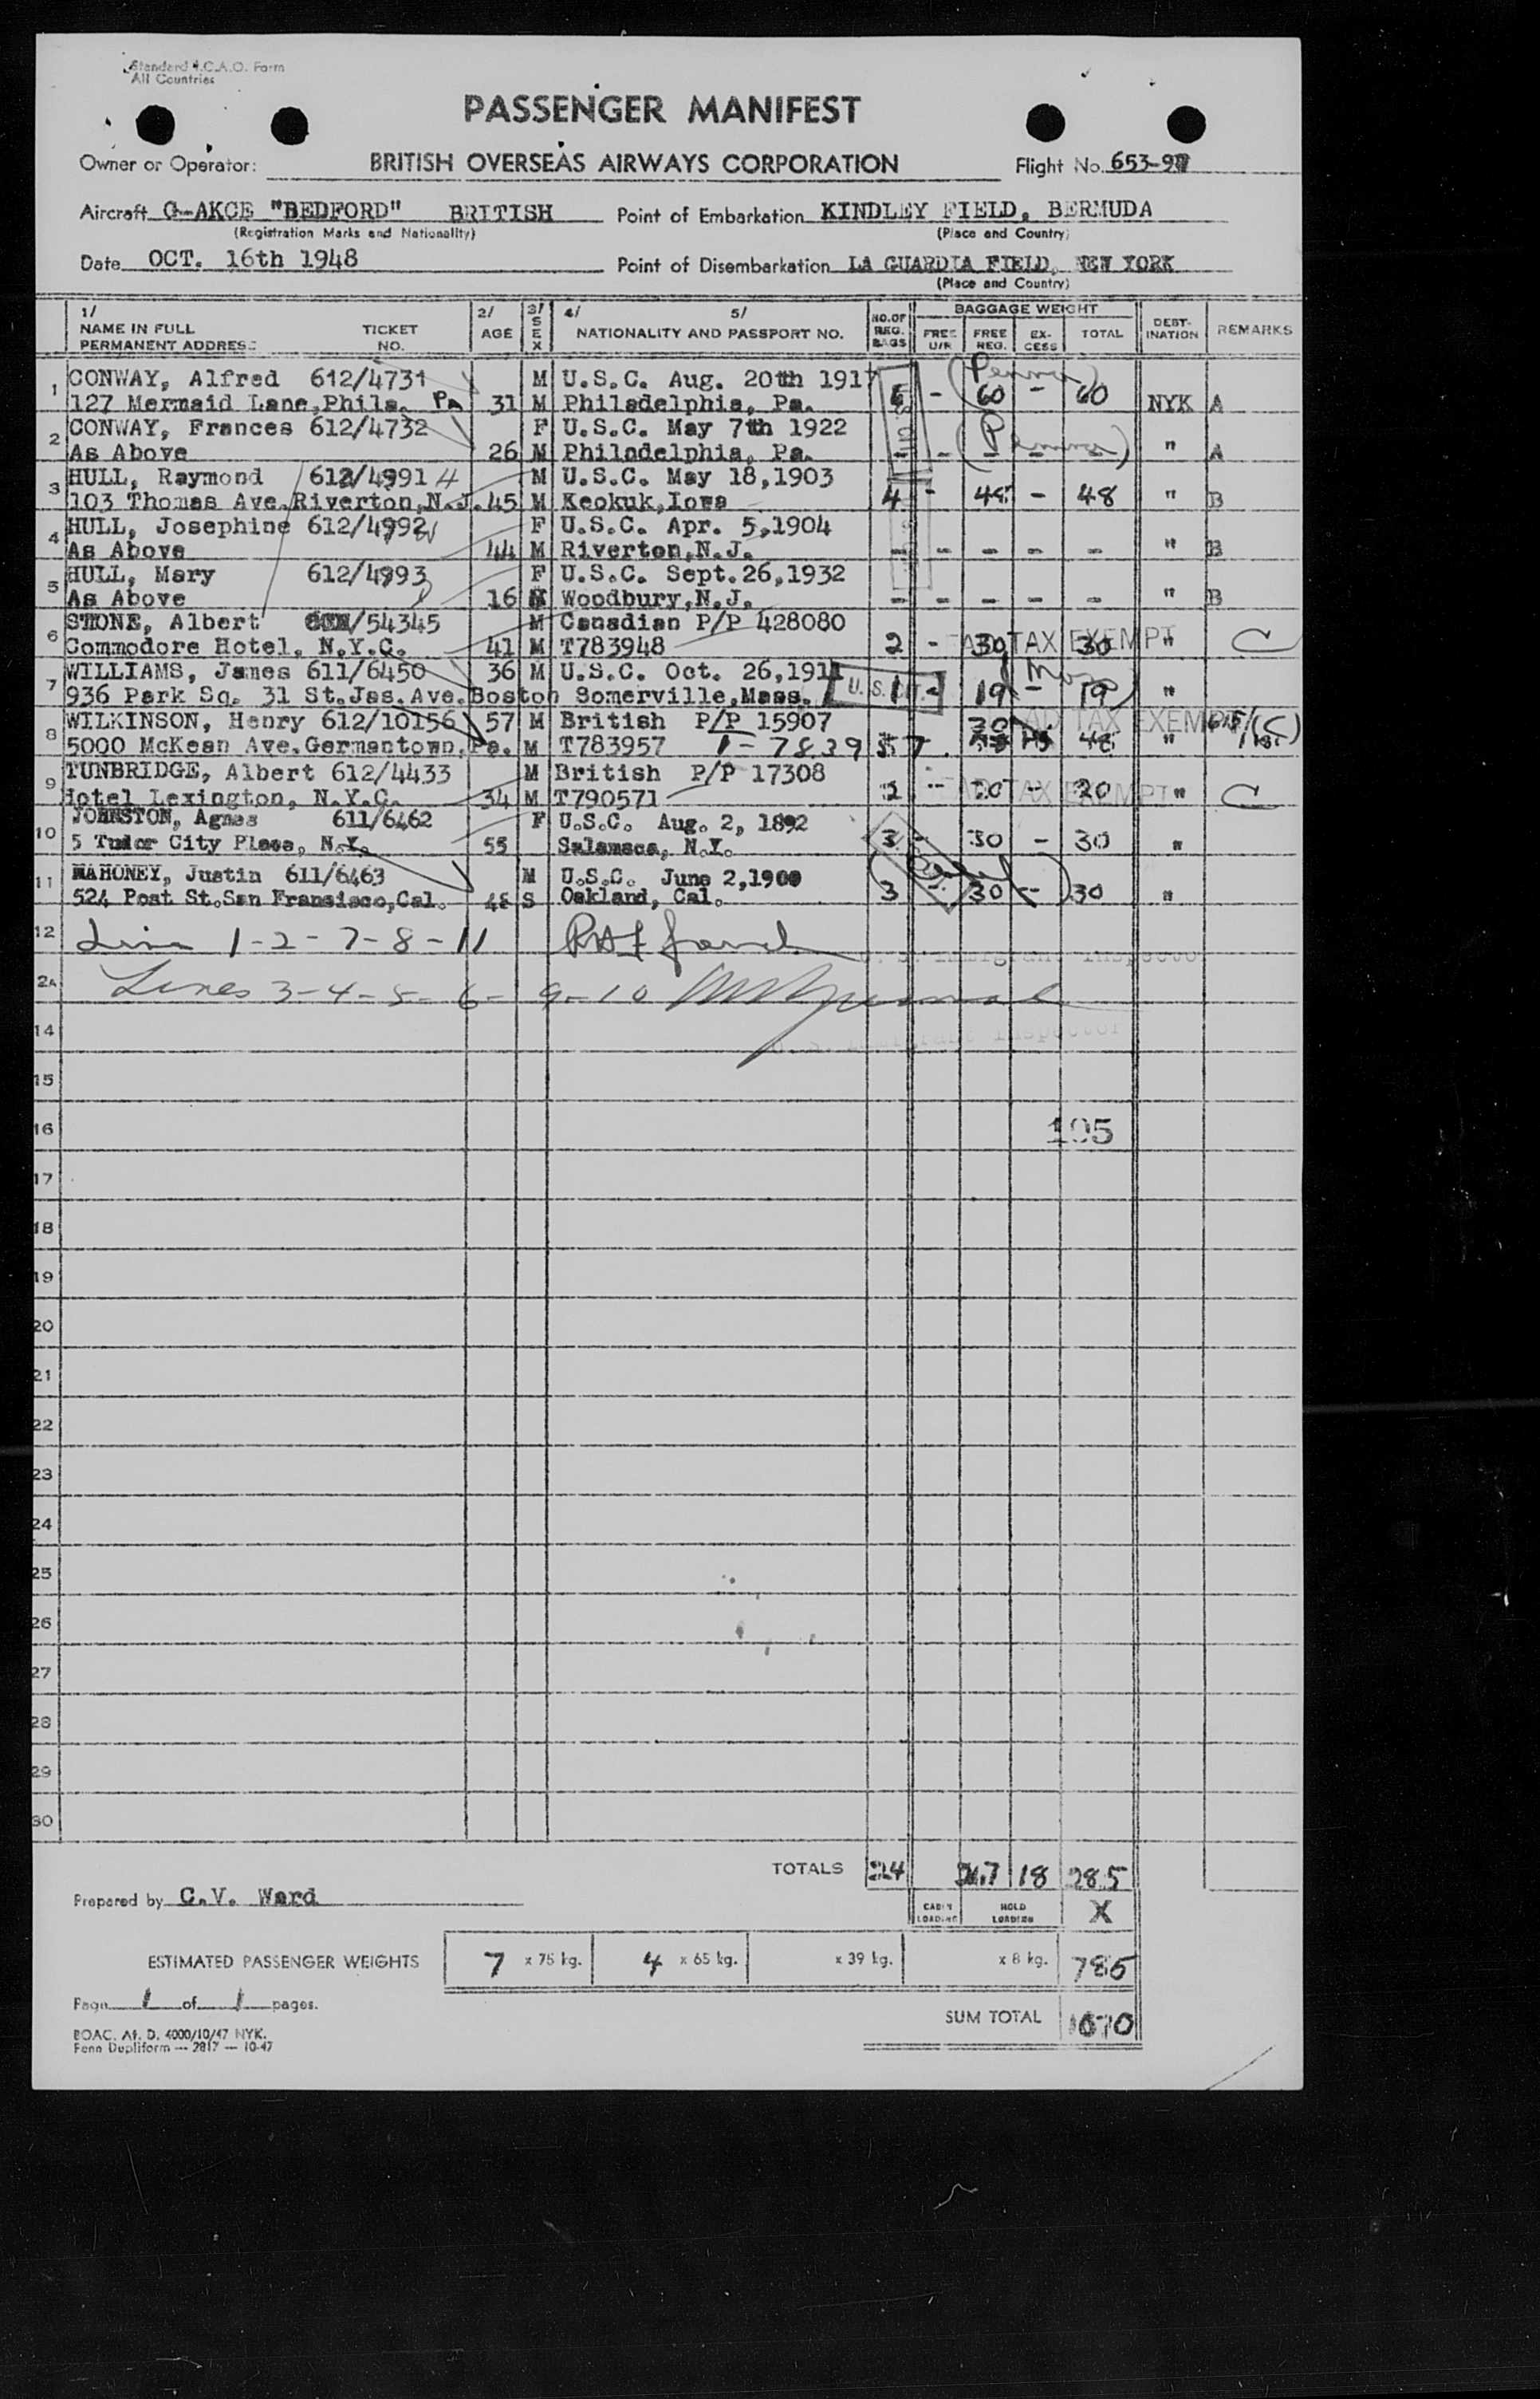 Standard I.C.A.O. Form
All Countries
PASSENGER MANIFEST
Owner or Operator: BRITISH OVERSEAS AIRWAYS CORPORATION Flight No. 653-97
Aircraft G-AKCE "BEDFORD" BRITISH Point of Embarkation KINDLEY FIELD, BERMUDA
(Registration Marks and Nationality) (Place and Country)
Date OCT. 16th 1948 Point of Disembarkation LA GUARDIA FIELD, NEW YORK
(Place and Country)
1/ 2/ 3/ 4/ 5/ BAGGAGE WEIGHT
NAME IN FULL TICKET AGE SEX NATIONALITY AND PASSPORT NO. NO. OF REG. BAGS FREE U/R FREE REG. EX-CESS TOTAL DEST-INATION REMARKS
PERMANENT ADDRESS NO.
1 CONWAY, Alfred 612/4731 M U.S.C. Aug. 20th 1917 (Penna)
127 Mermaid Lane, Phila. Pa 31 M Philadelphia, Pa. - 60 - 60 NYK A
2 CONWAY, Frances 612/4732 F U.S.C. May 7th 1922 (Penna)
As Above 26 M Philadelphia, Pa. - - - - - " A
3 HULL, Raymond 612/4991 M U.S.C. May 18,1903
103 Thomas Ave. Riverton, N.J. 45 M Keokuk, Iowa 4 - 48 - 48 " B
4 HULL, Josephine 612/4992 F U.S.C. Apr. 5,1904
As Above 44 M Riverton, N.J. - - - - - " B
5 HULL, Mary 612/4993 F U.S.C. Sept. 26,1932
As Above 16 Woodbury, N.J. - - - - - " B
6 STONE, Albert /54345 M Canadian P/P 428080
Commodore Hotel, N.Y.C. 41 M T783948 2 - 30 - 30 HEAD TAX EXEMPT " C
7 WILLIAMS, James 611/6450 36 M U.S.C. Oct. 26,1911 (Mass)
936 Park Sq. 31 St. Jas. Ave. Boston Somerville, Mass. U.S. CIT. 1 - 19 - 19 "
8 WILKINSON, Henry 612/10156 57 M British P/P 15907 30 HEAD TAX EXEMPT (C)
5000 McKean Ave. Germantown, Pa. M T783957 T-783957 48 "
9 TUNBRIDGE, Albert 612/4433 M British P/P 17308
Hotel Lexington, N.Y.C. 34 M T790571 2 - 20 - 20 HEAD TAX EXEMPT " C
10 JOHNSTON, Agnes 611/6462 F U.S.C. Aug. 2, 1892
5 Tudor City Place, N.Y. 55 Salamaca, N.Y. 3 - 30 - 30 "
11 MAHONEY, Justin 611/6463 M U.S.C. June 2,1900
524 Post St. San Fransisco, Cal. 48 S Oakland, Cal. 3 30 - 30 "
12 Line 1-2-7-8-11
U.S. Immigrant Inspector
Lines 3-4-5-6-9-10
14 U.S. Immigrant Inspector
15
16 195
17
18
19
20
21
22
23
24
25
26
27
28
29
30
TOTALS 24 267 18 285
Prepared by C.V. Ward CABIN LOADING HOLD LOADING X
ESTIMATED PASSENGER WEIGHTS 7 x 75 kg. 4 x 65 kg. x 39 kg. x 8 kg. 785
Page 1 of 1 pages.
SUM TOTAL 1070
BOAC. At. D. 4000/10/47 NYK.
Penn Dupliform -- 2817 -- 10-47